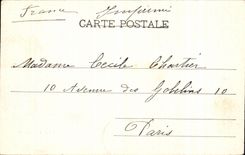 France Imprimé
CARTE POSTALE
Madame Cecile Chartier
10 Avenue des Gobelins 10
Paris